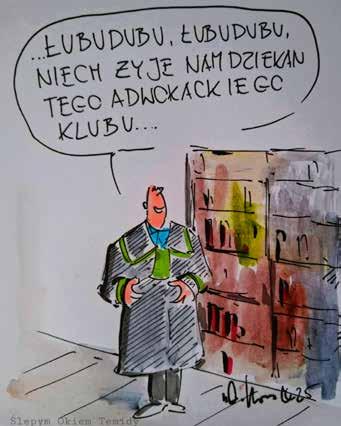 ...ŁUBUDUBU, ŁUBUDUBU,
NIECH ŻYJE NAM DZIEKAN
TEGO ADWOKACKIEGO
KLUBU...
25
Ślepym Okiem Temidy